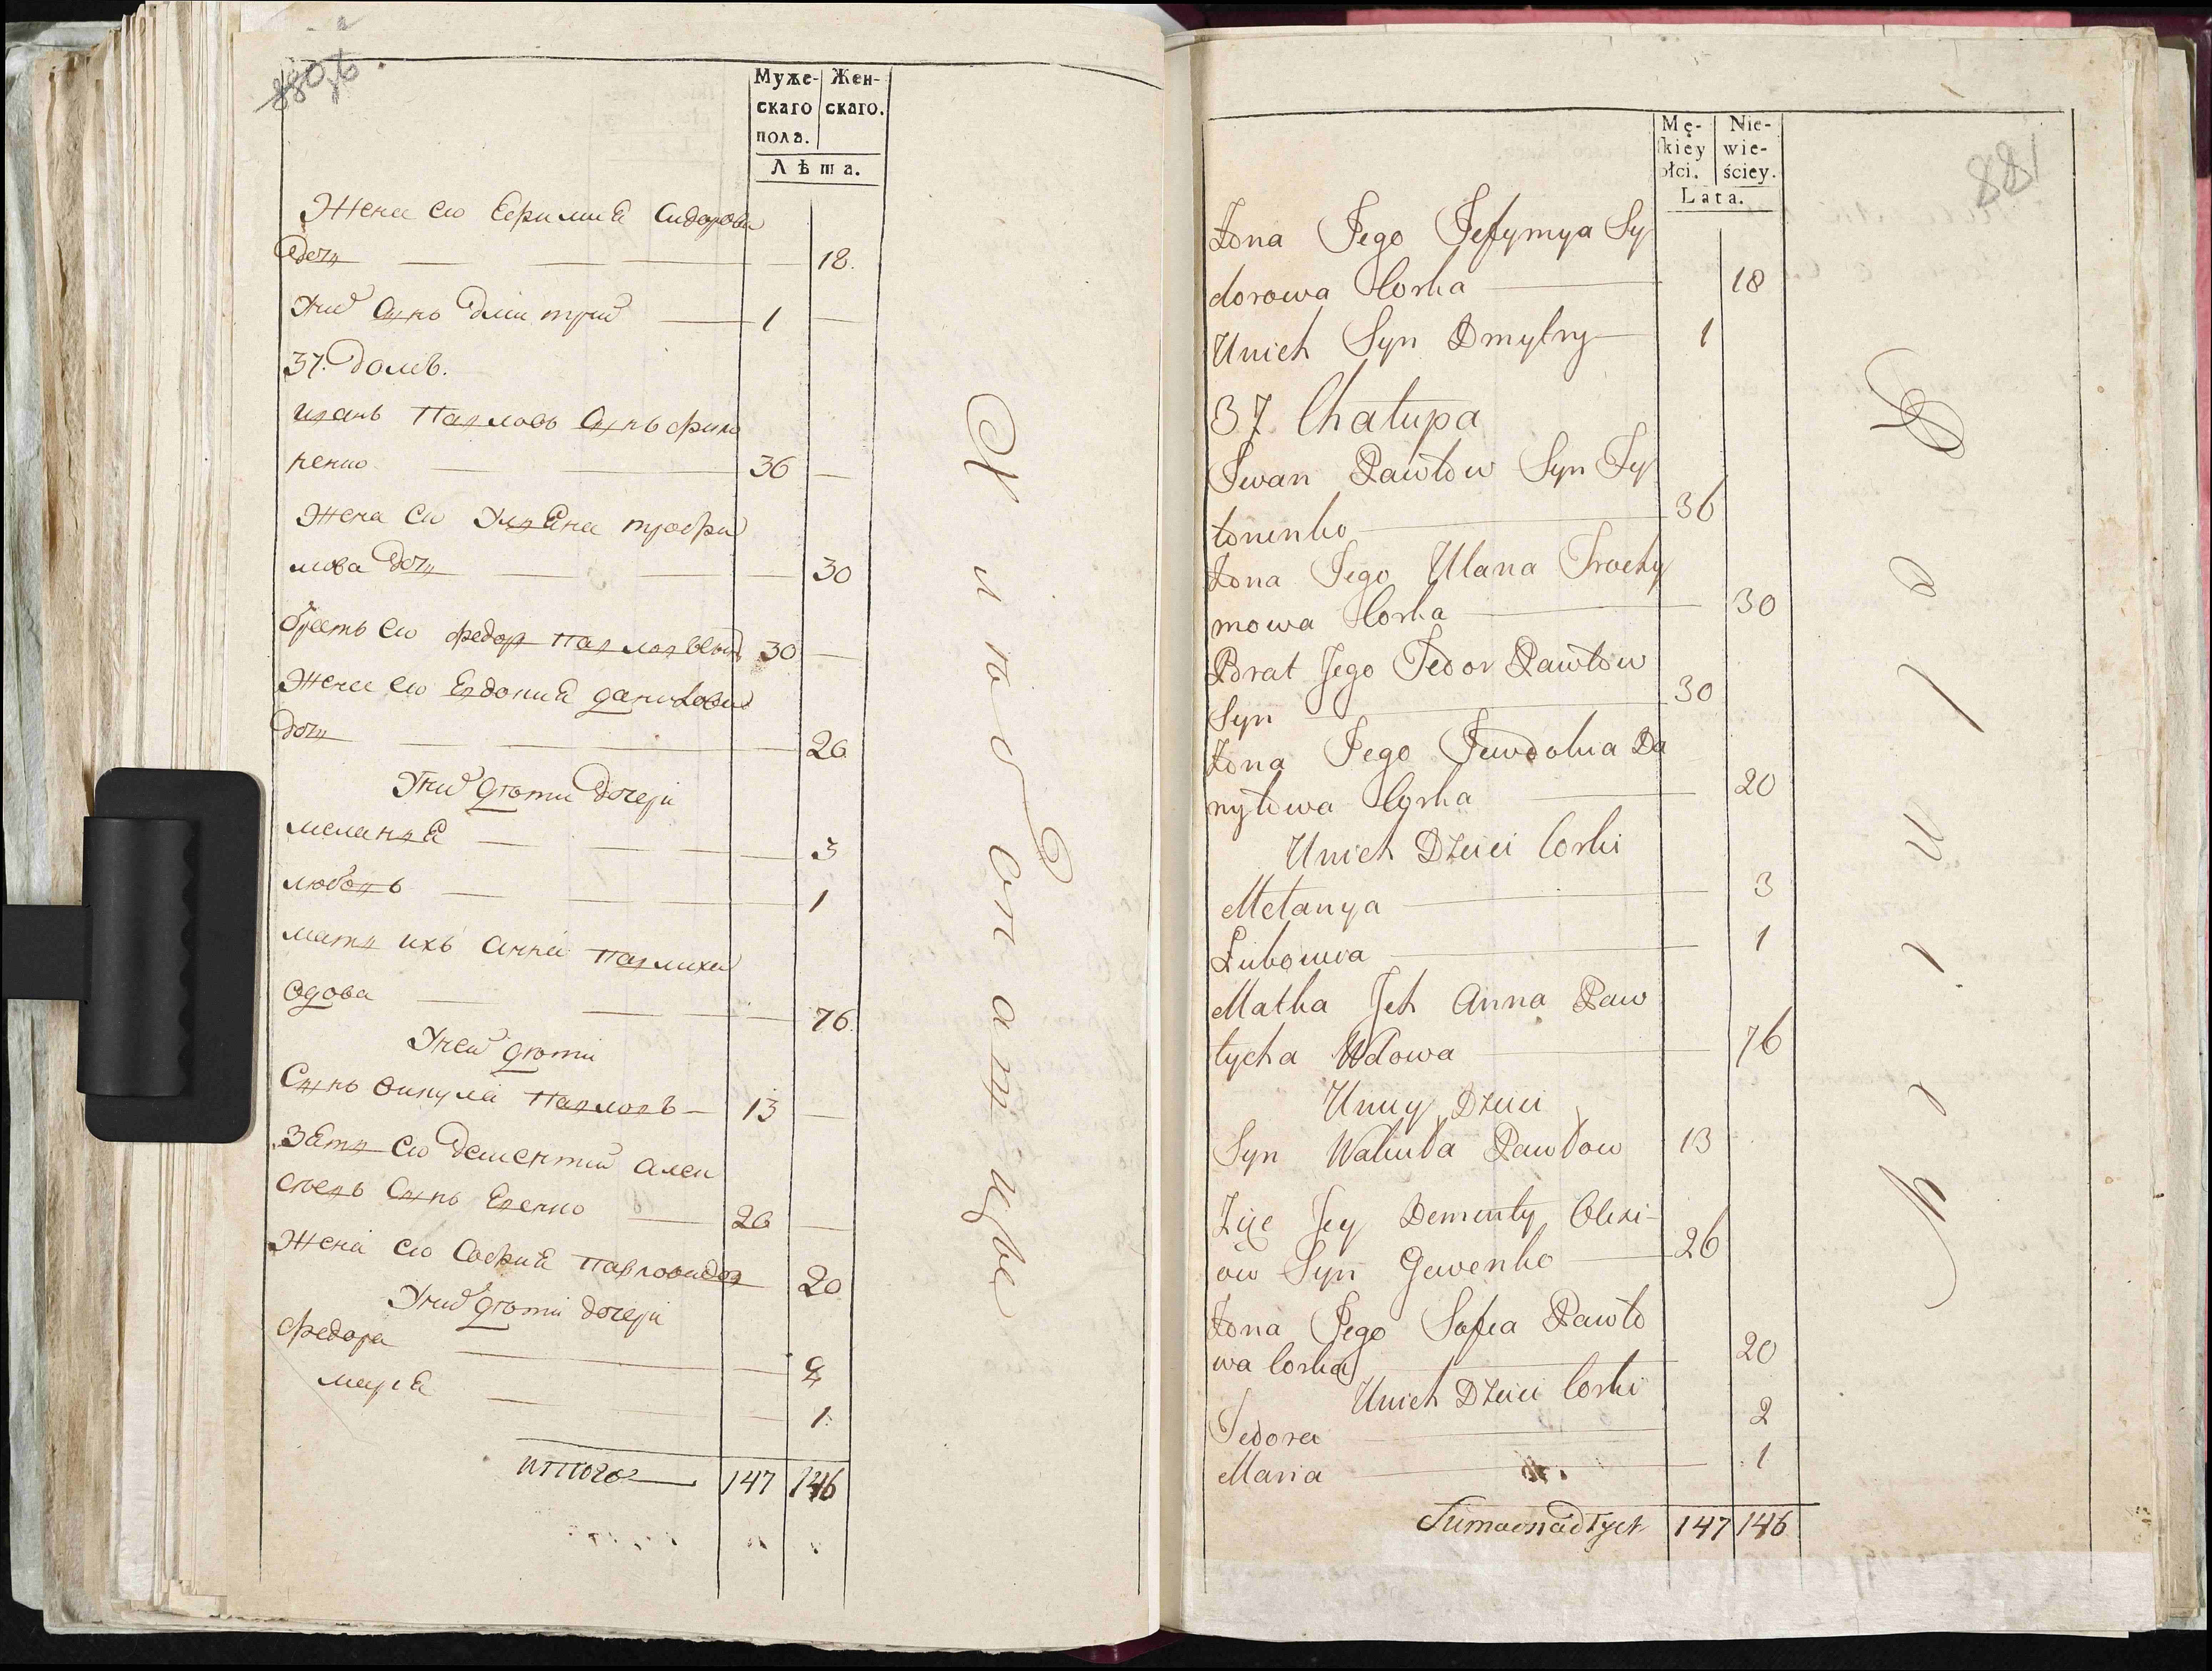 880 об
Муже- Жен-
скаго скаго.
пола.
Лѣта.
Жена ею Ефимиѣ Сидорова
дочъ 18.
Уних Сынъ Дмитрий 1
37. Домъ.
Иванъ Павловъ Сынъ фило
ненко 36
Жена ею Улѣяна трофи
мова дочъ 30
братъ ею Федор Павловъ Сынъ 30
Жена ею Евдокиѣ Данилова
дочъ 20
Уних дѣти дочери
меланъѣ 3
любовь 1
мать ихъ Анна Павлиха
вдова 76.
У неи дѣти
Сынъ Викула Павловъ 13
Зѣтъ ею Дементий Алек
сѣевъ Сынъ Евенко 26
Жена ею Софиѣ Павловадоч 20
Уних дѣти дочери
Федора 2
Мариѣ 1.
иттого 147 146
881
Mę- Nie-
skiey wie-
płci. ściey.
Lata.
Żona Jego Jefymya Sy
dorowa Corka 18
Unich Syn Dmytry 1
37 Chałupa
Iwan Pawłow Syn Fy
łonenko 36
Żona Jego Ulana Trochy
mowa Corka 30
Brat Jego Fedor Pawłow
Syn 30
Żona Jego Jewdokia Da
nyłowa Corka 20
Unich Dzieci Corki
Mełanya 3
Lubowia 1
Matka Jch Anna Paw
łycha Wdowa 76
Uniey Dzieci
Syn Wakuła Pawłow 13
Zięć Jey Dementy Olexi-
ow Syn Gewenko 26
Żona Jego Sofia Pawło
wa Corka 20
Unich Dzieci Corki
Fedora 2
Maria 1
147 146